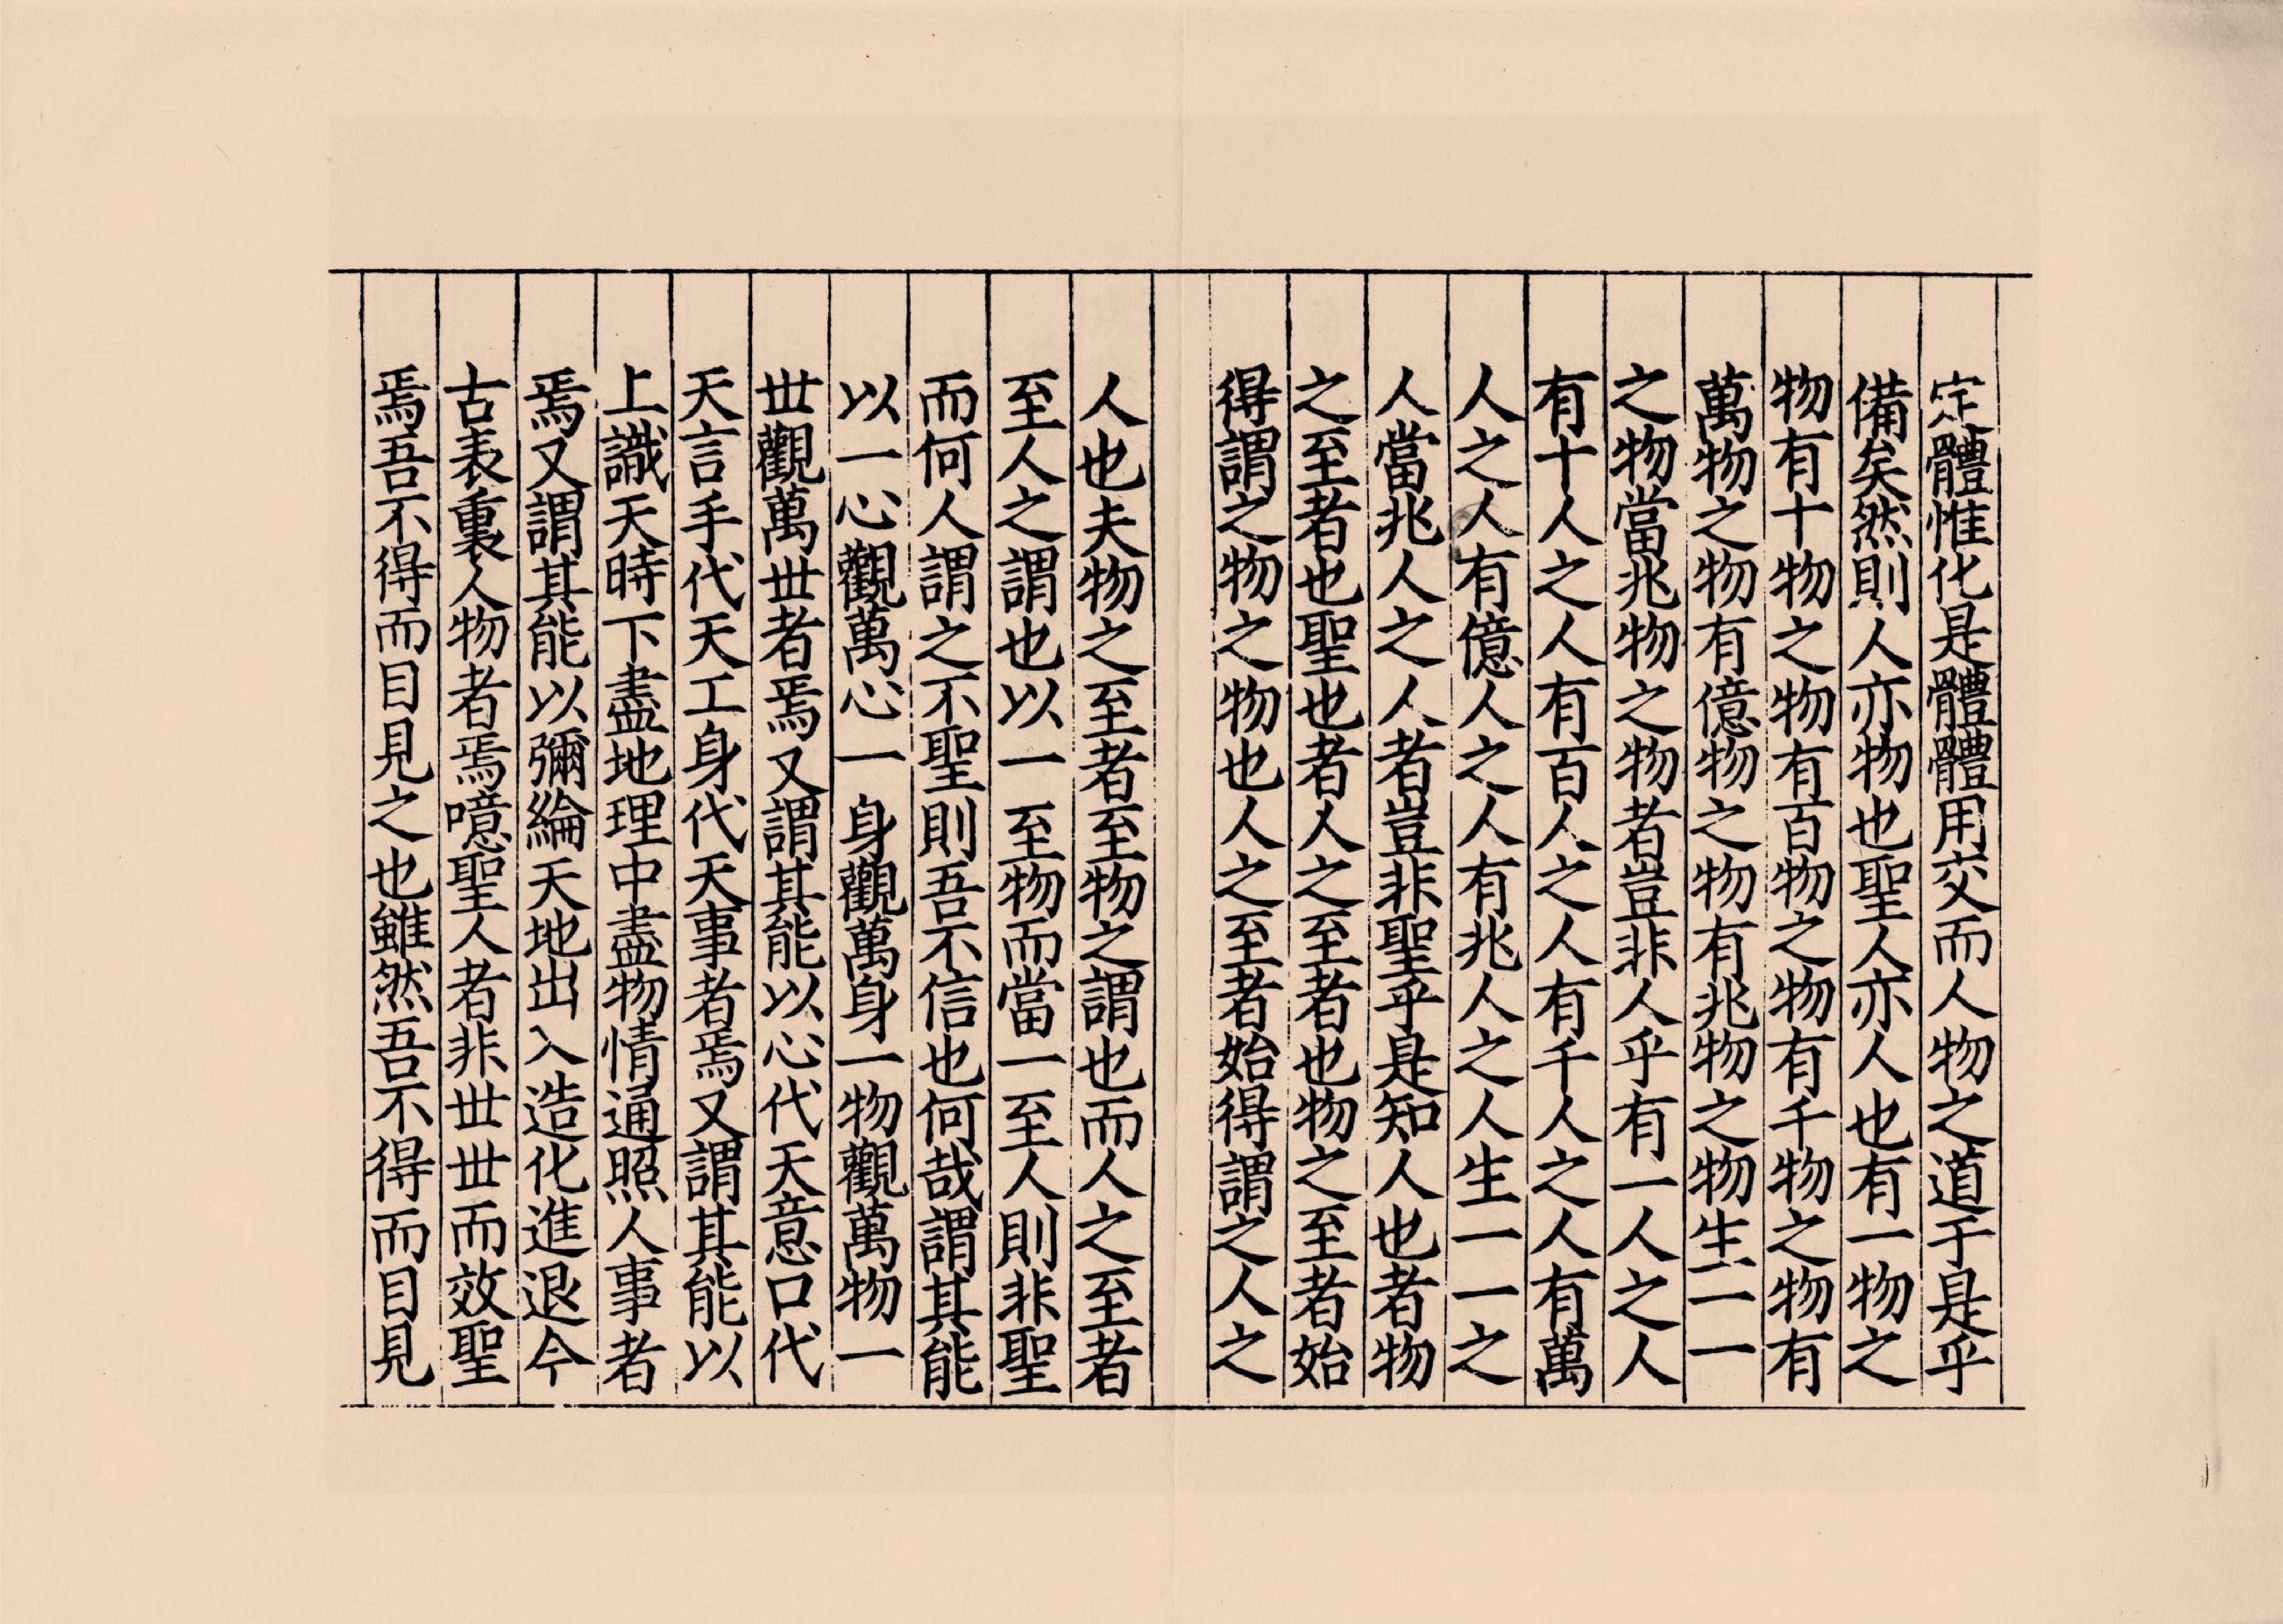 定體惟化是體體用交而人物之道于是乎
備矣然則人亦物也聖人亦人也有一物之
物有十物之物有百物之物有千物之物有
萬物之物有億物之物有兆物之物生一一
之物當兆物之物者豈非人乎有一人之人
有十人之人有百人之人有千人之人有萬
人之人有億人之人有兆人之人生一一之
人當兆人之人者豈非聖乎是知人也者物
之至者也聖也者人之至者也物之至者始
得謂之物之物也人之至者始得謂之人之
人也夫物之至者至物之謂也而人之至者
至人之謂也以一至物而當一至人則非聖
而何人謂之不聖則吾不信也何哉謂其能
以一心觀萬心一身觀萬身一物觀萬物一
丗觀萬丗者焉又謂其能以心代天意口代
天言手代天工身代天事者焉又謂其能以
上識天時下盡地理中盡物情通照人事者
焉又謂其能以彌綸天地出入造化進退今
古表裏人物者焉噫聖人者非丗丗而效聖
焉吾不得而目見之也雖然吾不得而目見